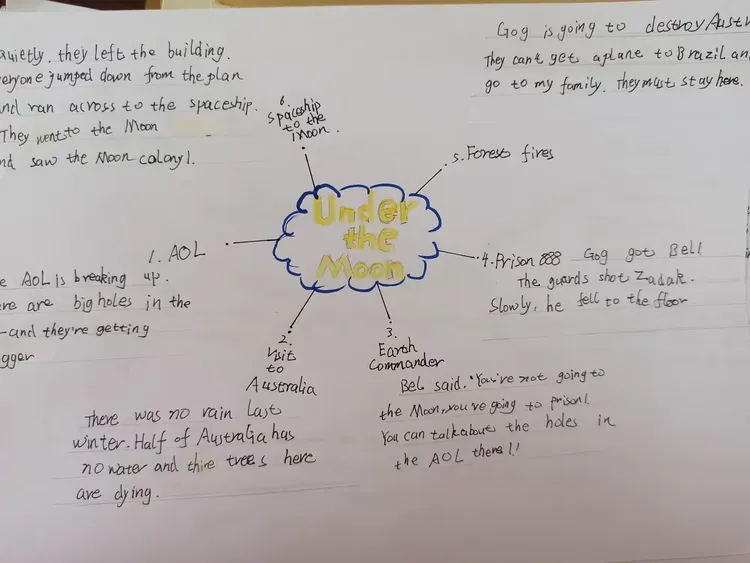 quietly, they left the building.
everyone jumped down from the plan
and ran across to the spaceship.
They went to the Moon
and saw the Moon colony1.
6.
Spaceship
to the
Moon.
Gog is going to destroy Austr
They cant get aplane to Brazil an
go to my family. They must stay here.
5. Forest fires
Under
the
Moon
1. AOL
e AOL is breaking up.
ere are big holes in the
-and they're getting
gger
4. Prison 888
Gog got Bell
The guards shot Zadak.
Slowly, he fell to the floor
2.
Visit
to
Australia
There was no rain last
winter. Half of Australia has
no water and thire trees here
are dying.
3.
Earth
Commander
Bel said. "You're not going to
the Moon, you're going to prison!
You can talkabout the holes in
the AOL there!"